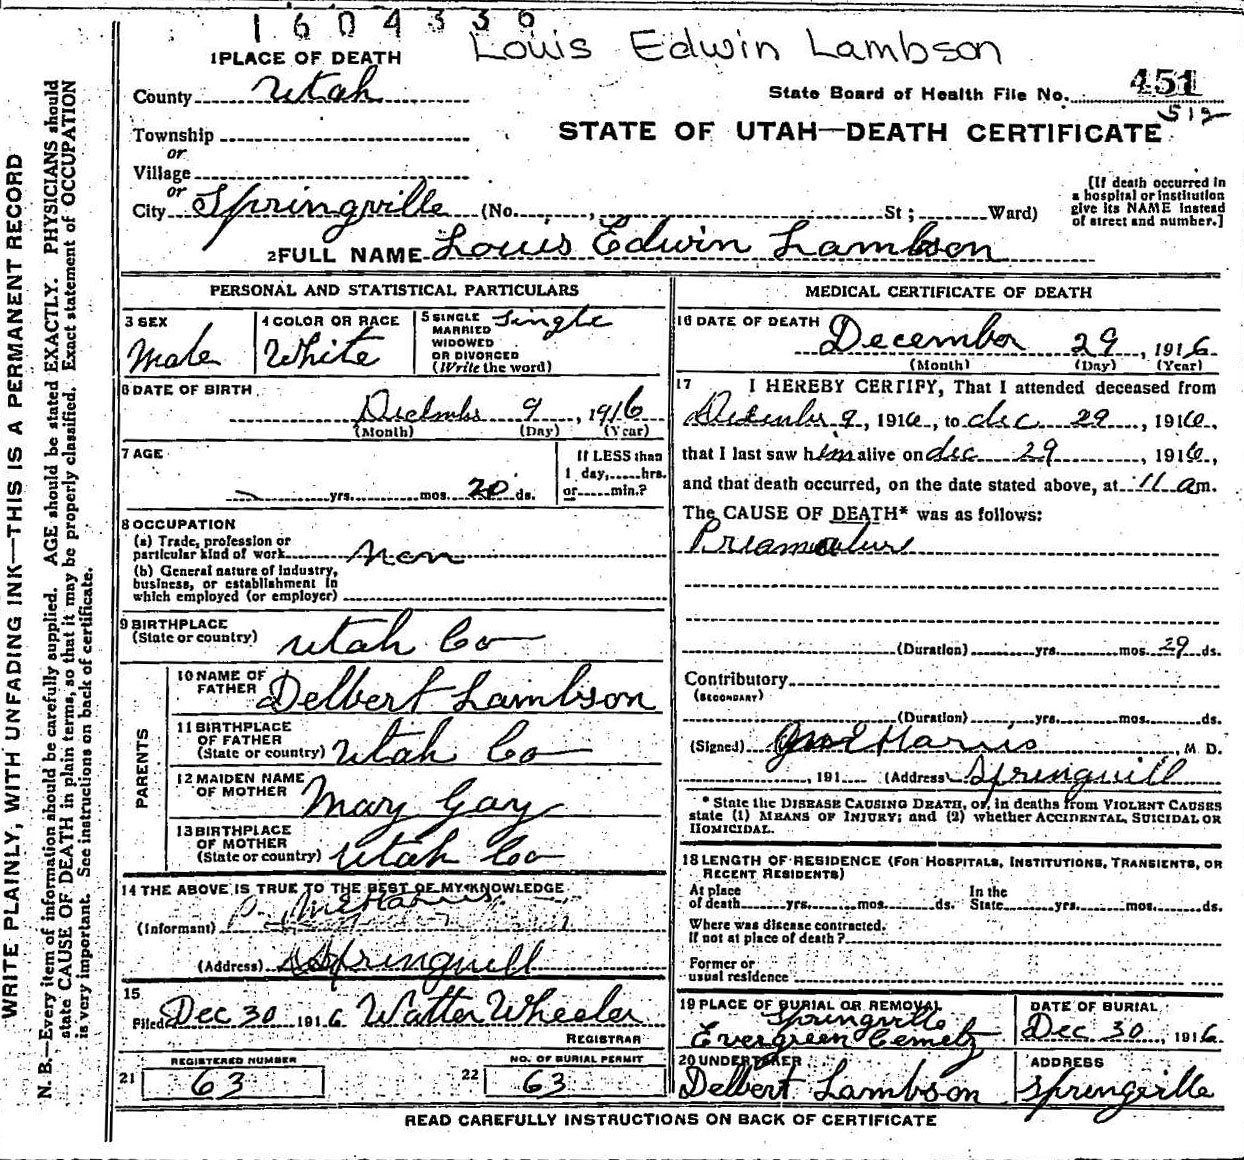 1604330
Louis Edwin Lambson
1 PLACE OF DEATH
County Utah
State Board of Health File No. 451
512
Township
or
STATE OF UTAH—DEATH CERTIFICATE
Village
or
City Springville (No. , St; Ward)
[If death occurred in
a hospital or institution
give its NAME instead
of street and number.]
2 FULL NAME Louis Edwin Lambson
PERSONAL AND STATISTICAL PARTICULARS
3 SEX
Male
4 COLOR OR RACE
White
5 SINGLE
MARRIED
WIDOWED
OR DIVORCED
(Write the word)
Single
6 DATE OF BIRTH
December 9, 1916
(Month) (Day) (Year)
7 AGE
yrs. mos. 20 ds.
If LESS than
1 day, hrs.
or min.?
8 OCCUPATION
(a) Trade, profession or
particular kind of work non
(b) General nature of industry,
business, or establishment in
which employed (or employer)
9 BIRTHPLACE
(State or country) Utah Co
PARENTS
10 NAME OF
FATHER Delbert Lambson
11 BIRTHPLACE
OF FATHER
(State or country) Utah Co
12 MAIDEN NAME
OF MOTHER Mary Gay
13 BIRTHPLACE
OF MOTHER
(State or country) Utah Co
14 THE ABOVE IS TRUE TO THE BEST OF MY KNOWLEDGE
(Informant)
(Address) Springvill
15
Filed Dec 30 1916 Walter Wheeler
REGISTRAR
21 REGISTERED NUMBER
63
22 NO. OF BURIAL PERMIT
63
MEDICAL CERTIFICATE OF DEATH
16 DATE OF DEATH
December 29, 1916
(Month) (Day) (Year)
17 I HEREBY CERTIFY, That I attended deceased from
December 9, 1916, to dec 29, 1916,
that I last saw him alive on dec 29, 1916,
and that death occurred, on the date stated above, at 11 am.
The CAUSE OF DEATH* was as follows:
(Duration) yrs. mos. 29 ds.
Contributory
(SECONDARY)
(Duration) yrs. mos. ds.
(Signed) Harris, M. D.
, 191 (Address) Springvill
* State the DISEASE CAUSING DEATH, or, in deaths from VIOLENT CAUSES
state (1) MEANS OF INJURY; and (2) whether ACCIDENTAL, SUICIDAL OR
HOMICIDAL.
18 LENGTH OF RESIDENCE (FOR HOSPITALS, INSTITUTIONS, TRANSIENTS, OR
RECENT RESIDENTS)
At place
of death yrs. mos. ds.
In the
State yrs. mos. ds.
Where was disease contracted.
If not at place of death?
Former or
usual residence
19 PLACE OF BURIAL OR REMOVAL
Springville
Evergreen Cemety
DATE OF BURIAL
Dec 30, 1916
20 UNDERTAKER
Delbert Lambson
ADDRESS
Springville
READ CAREFULLY INSTRUCTIONS ON BACK OF CERTIFICATE
WRITE PLAINLY, WITH UNFADING INK—THIS IS A PERMANENT RECORD
N. B.—Every item of information should be carefully supplied. AGE should be stated EXACTLY. PHYSICIANS should
state CAUSE OF DEATH in plain terms, so that it may be properly classified. Exact statement of OCCUPATION
is very important. See instructions on back of certificate.